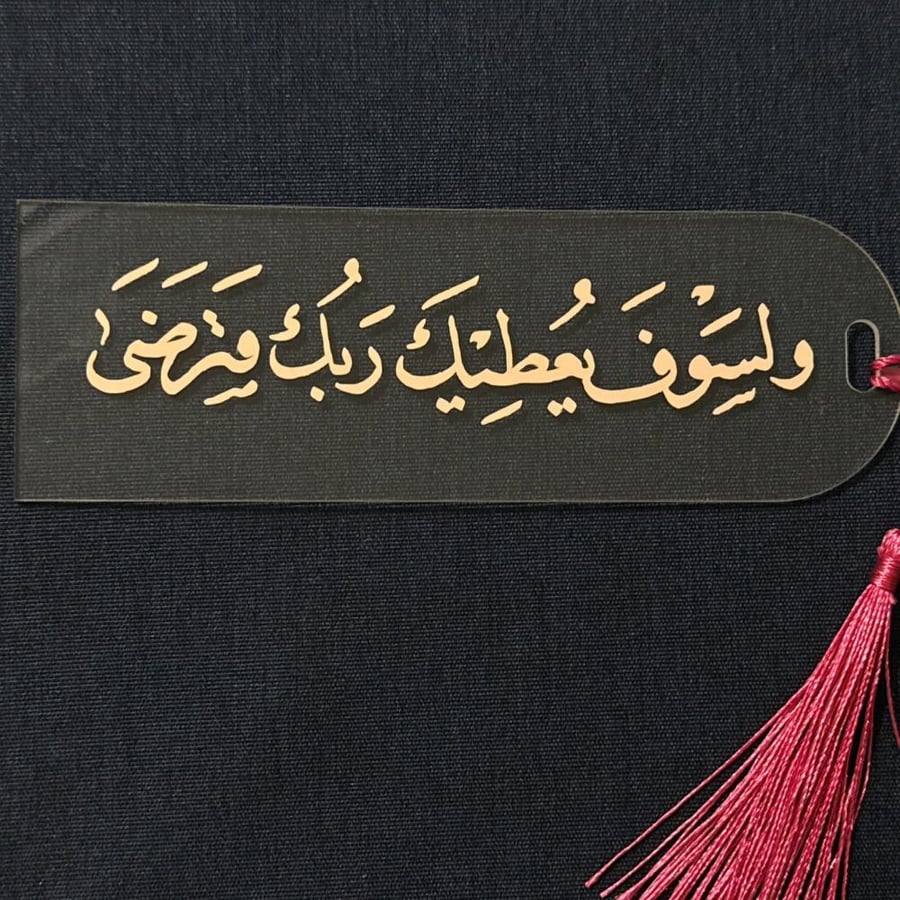 ولسِوْفَ يُعطِيْكَ رَبُكَ فَتَرضَىَ